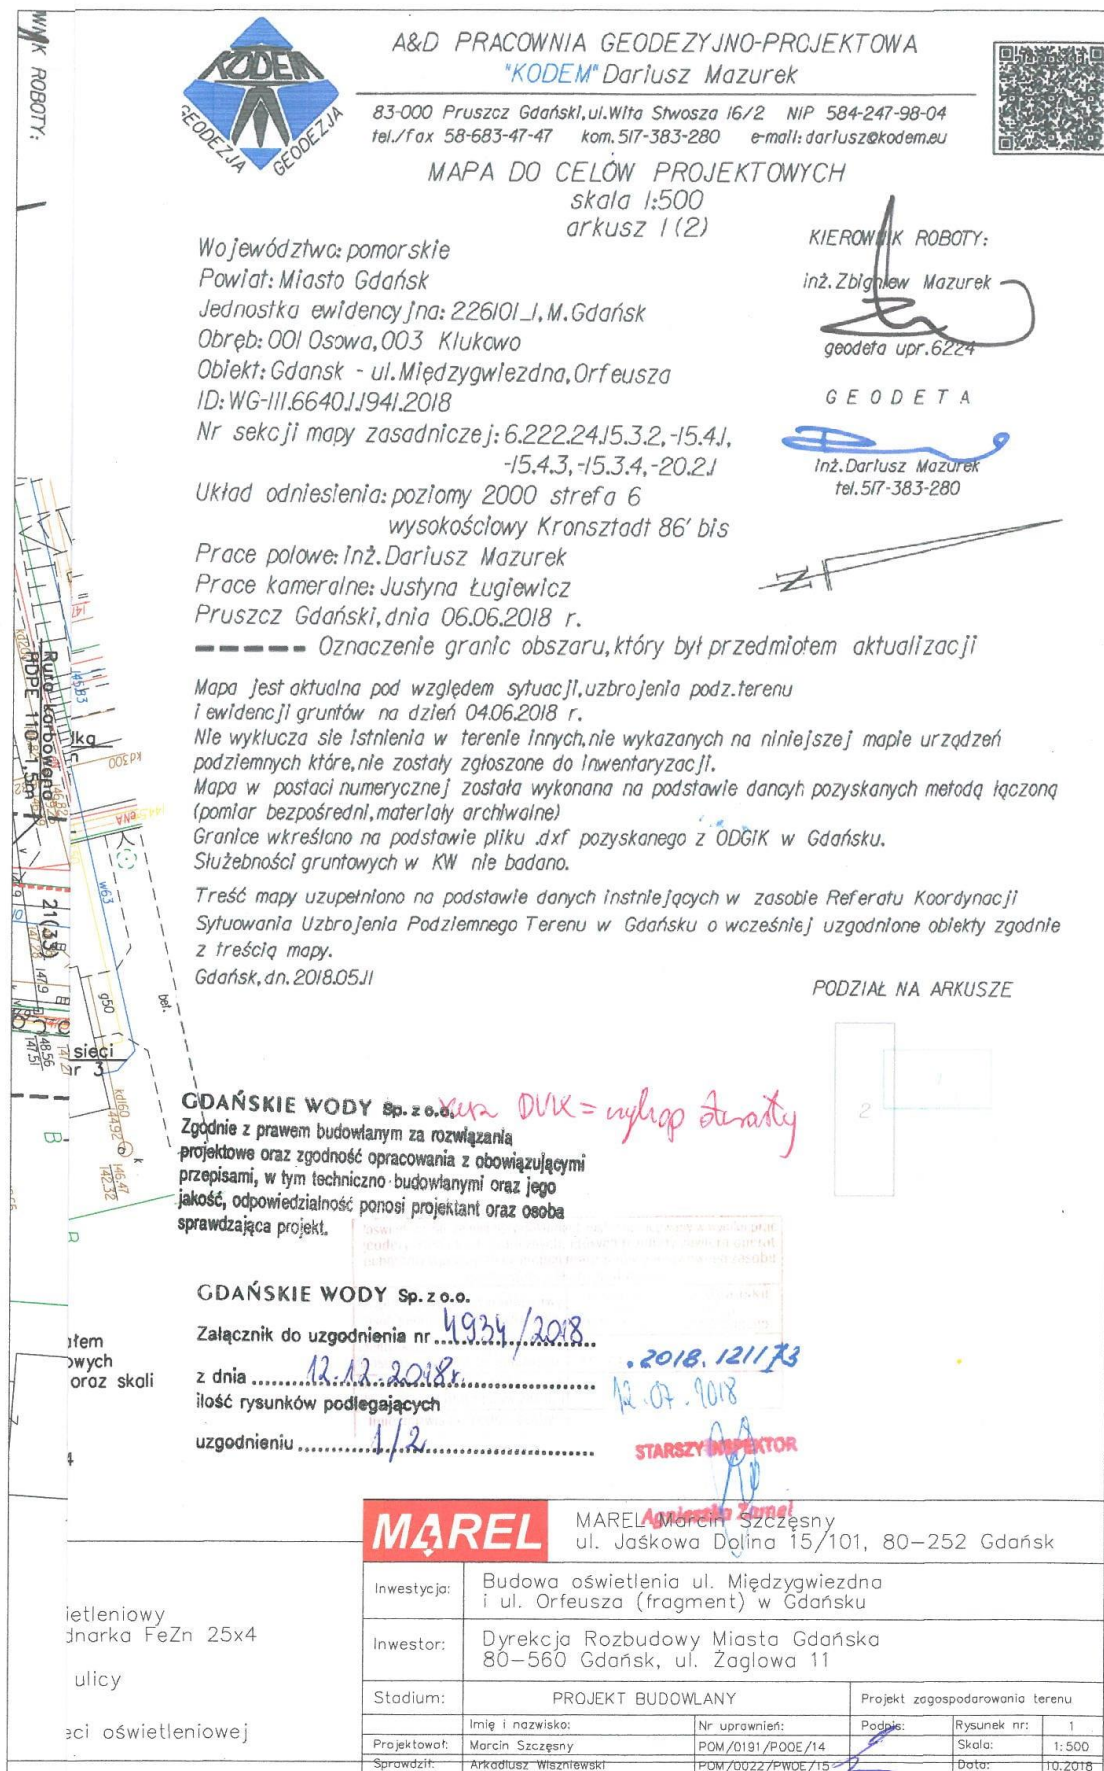 WNIK ROBOTY:
KODEM
GEODEZJA
GEODEZJA
A&D PRACOWNIA GEODEZYJNO-PROJEKTOWA
"KODEM" Dariusz Mazurek
83-000 Pruszcz Gdański,ul.Wita Stwosza 16/2 NIP 584-247-98-04
tel./fax 58-683-47-47 kom. 517-383-280 e-mail: dariusz@kodem.eu
MAPA DO CELÓW PROJEKTOWYCH
skala 1:500
arkusz 1 (2)
KIEROWNIK ROBOTY:
inż. Zbigniew Mazurek
geodeta upr.6224
GEODETA
inż. Dariusz Mazurek
tel. 517-383-280
Województwo: pomorskie
Powiat: Miasto Gdańsk
Jednostka ewidencyjna: 226101_1, M.Gdańsk
Obręb: 001 Osowa, 003 Klukowo
Obiekt: Gdansk - ul.Międzygwiezdna, Orfeusza
ID: WG-III.6640.1.1941.2018
Nr sekcji mapy zasadniczej: 6.222.24.15.3.2,-15.4.1,
-15.4.3,-15.3.4,-20.2.1
Układ odniesienia: poziomy 2000 strefa 6
wysokościowy Kronsztadt 86' bis
N
Prace polowe: inż. Dariusz Mazurek
Prace kameralne: Justyna Ługiewicz
Pruszcz Gdański, dnia 06.06.2018 r.
Oznaczenie granic obszaru, który był przedmiotem aktualizacji
Mapa jest aktualna pod względem sytuacji,uzbrojenia podz.terenu
i ewidencji gruntów na dzień 04.06.2018 r.
Nie wyklucza sie istnienia w terenie innych,nie wykazanych na niniejszej mapie urządzeń
podziemnych które,nie zostały zgłoszone do inwentaryzacji.
Mapa w postaci numerycznej została wykonana na podstawie dancyh pozyskanych metodą łączoną
(pomiar bezpośredni,materiały archiwalne)
Granice wkreślono na podstawie pliku .dxf pozyskanego z ODGiK w Gdańsku.
Służebności gruntowych w KW nie badano.
Treść mapy uzupełniono na podstawie danych instniejących w zasobie Referatu Koordynacji
Sytuowania Uzbrojenia Podziemnego Terenu w Gdańsku o wcześniej uzgodnione obiekty zgodnie
z treścią mapy.
Gdańsk, dn. 2018.05.11
PODZIAŁ NA ARKUSZE
1
2
Rura karbowana
HDPE 110-1,5m
kd300
eNA
w63
21(35)
g50
bet.
sieci
nr 3
kd160
144.92
146.47
142.32
148.56
147.51
B
GDAŃSKIE WODY Sp. z o.o.
DVK = wykop otwarty
Zgodnie z prawem budowlanym za rozwiązania
projektowe oraz zgodność opracowania z obowiązującymi
przepisami, w tym techniczno-budowlanymi oraz jego
jakość, odpowiedzialność ponosi projektant oraz osoba
sprawdzająca projekt.
GDAŃSKIE WODY Sp. z o.o.
Załącznik do uzgodnienia nr 4934/2018
z dnia 12.12.2018r.
ilość rysunków podlegających
uzgodnieniu 1/2
.2018. 121173
12.07.2018
STARSZY INSPEKTOR
Agnieszka Zamel
atem
owych
oraz skali
ietleniowy
dnarka FeZn 25x4
ulicy
eci oświetleniowej
MAREL
MAREL Marcin Szczęsny
ul. Jaśkowa Dolina 15/101, 80-252 Gdańsk
Inwestycja: Budowa oświetlenia ul. Międzygwiezdna
i ul. Orfeusza (fragment) w Gdańsku
Inwestor: Dyrekcja Rozbudowy Miasta Gdańska
80-560 Gdańsk, ul. Żaglowa 11
Stadium: PROJEKT BUDOWLANY Projekt zagospodarowania terenu
Imię i nazwisko: Nr uprawnień: Podpis: Rysunek nr: 1
Projektował: Marcin Szczęsny POM/0191/POOE/14 Skala: 1:500
Sprawdził: Arkadiusz Wiszniewski POM/0022/PWOE/15 Data: 10.2018